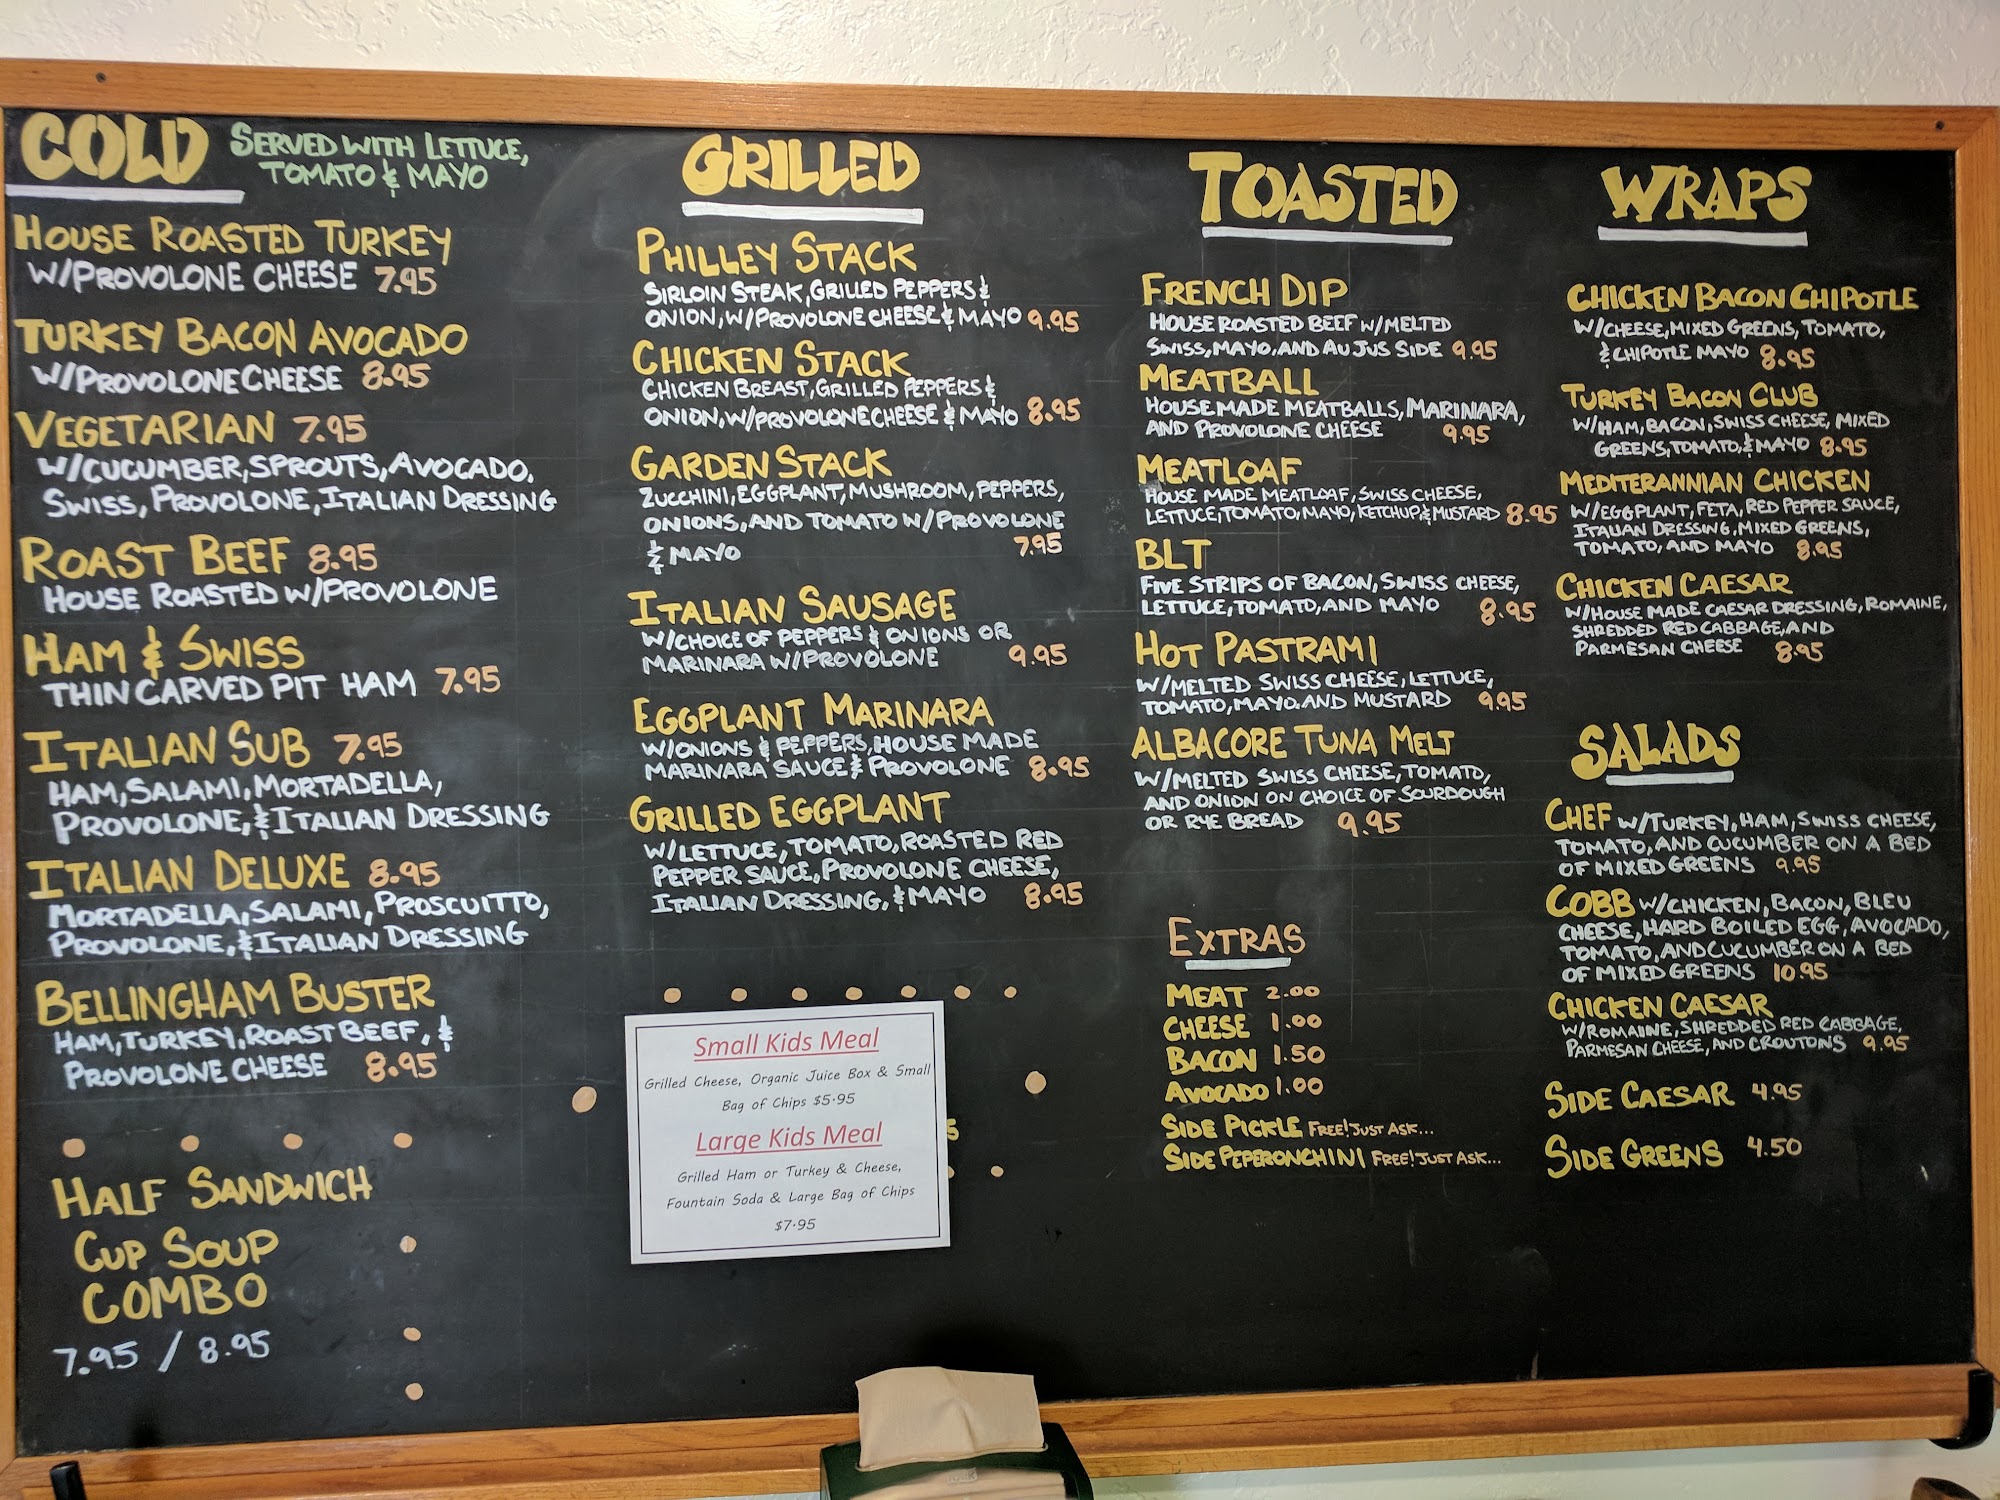 COLD
SERVED WITH LETTUCE,
TOMATO & MAYO
HOUSE ROASTED TURKEY
W/PROVOLONE CHEESE 7.95
TURKEY BACON AVOCADO
W/PROVOLONE CHEESE 8.95
VEGETARIAN 7.95
W/CUCUMBER, SPROUTS, AVOCADO,
SWISS, PROVOLONE, ITALIAN DRESSING
ROAST BEEF 8.95
HOUSE ROASTED W/PROVOLONE
HAM & SWISS
THIN CARVED PIT HAM 7.95
ITALIAN SUB 7.95
HAM, SALAMI, MORTADELLA,
PROVOLONE, & ITALIAN DRESSING
ITALIAN DELUXE 8.95
MORTADELLA, SALAMI, PROSCUITTO,
PROVOLONE, & ITALIAN DRESSING
BELLINGHAM BUSTER
HAM, TURKEY, ROAST BEEF, &
PROVOLONE CHEESE 8.95
HALF SANDWICH
CUP SOUP
COMBO
7.95 / 8.95
GRILLED
PHILLEY STACK
SIRLOIN STEAK, GRILLED PEPPERS &
ONION, W/PROVOLONE CHEESE & MAYO 9.95
CHICKEN STACK
CHICKEN BREAST, GRILLED PEPPERS &
ONION, W/PROVOLONE CHEESE & MAYO 8.95
GARDEN STACK
ZUCCHINI, EGGPLANT, MUSHROOM, PEPPERS,
ONIONS, AND TOMATO W/PROVOLONE
& MAYO 7.95
ITALIAN SAUSAGE
W/CHOICE OF PEPPERS & ONIONS OR
MARINARA W/PROVOLONE 9.95
EGGPLANT MARINARA
W/ONIONS & PEPPERS, HOUSE MADE
MARINARA SAUCE & PROVOLONE 8.95
GRILLED EGGPLANT
W/LETTUCE, TOMATO, ROASTED RED
PEPPER SAUCE, PROVOLONE CHEESE,
ITALIAN DRESSING, & MAYO 8.95
Small Kids Meal
Grilled Cheese, Organic Juice Box & Small
Bag of Chips $5.95
Large Kids Meal
Grilled Ham or Turkey & Cheese,
Fountain Soda & Large Bag of Chips
$7.95
5
TOASTED
FRENCH DIP
HOUSE ROASTED BEEF W/MELTED
SWISS, MAYO, AND AU JUS SIDE 9.95
MEATBALL
HOUSEMADE MEATBALLS, MARINARA,
AND PROVOLONE CHEESE 9.95
MEATLOAF
HOUSE MADE MEATLOAF, SWISS CHEESE,
LETTUCE, TOMATO, MAYO, KETCHUP & MUSTARD 8.95
BLT
FIVE STRIPS OF BACON, SWISS CHEESE,
LETTUCE, TOMATO, AND MAYO 8.95
HOT PASTRAMI
W/MELTED SWISS CHEESE, LETTUCE,
TOMATO, MAYO. AND MUSTARD 9.95
ALBACORE TUNA MELT
W/MELTED SWISS CHEESE, TOMATO,
AND ONION ON CHOICE OF SOURDOUGH
OR RYE BREAD 9.95
EXTRAS
MEAT 2.00
CHEESE 1.00
BACON 1.50
AVOCADO 1.00
SIDE PICKLE FREE! JUST ASK...
SIDE PEPERONCHINI FREE! JUST ASK...
WRAPS
CHICKEN BACON CHIPOTLE
W/CHEESE, MIXED GREENS, TOMATO,
& CHIPOTLE MAYO 8.95
TURKEY BACON CLUB
W/HAM, BACON, SWISS CHEESE, MIXED
GREENS, TOMATO, & MAYO 8.95
MEDITERANNIAN CHICKEN
W/EGGPLANT, FETA, RED PEPPER SAUCE,
ITALIAN DRESSING, MIXED GREENS,
TOMATO, AND MAYO 8.95
CHICKEN CAESAR
W/HOUSE MADE CAESAR DRESSING, ROMAINE,
SHREDDED RED CABBAGE, AND
PARMESAN CHEESE 8.95
SALADS
CHEF W/TURKEY, HAM, SWISS CHEESE,
TOMATO, AND CUCUMBER ON A BED
OF MIXED GREENS 9.95
COBB W/CHICKEN, BACON, BLEU
CHEESE, HARD BOILED EGG, AVOCADO,
TOMATO, AND CUCUMBER ON A BED
OF MIXED GREENS 10.95
CHICKEN CAESAR
W/ROMAINE, SHREDDED RED CABBAGE,
PARMESAN CHEESE, AND CROUTONS 9.95
SIDE CAESAR 4.95
SIDE GREENS 4.50